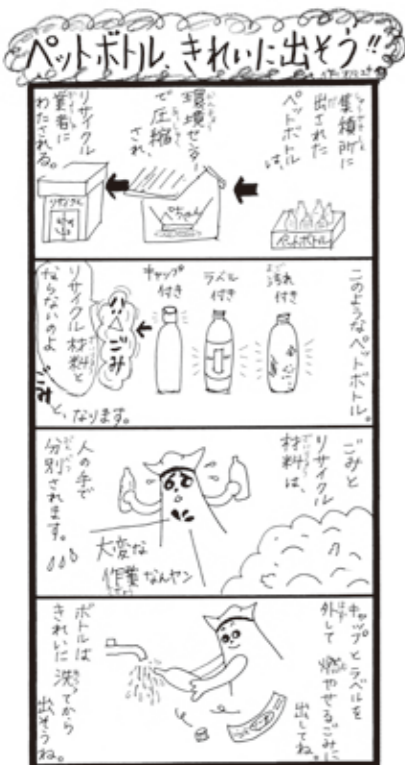 ペットボトル、きれいに出そう!!
集積所に
出された
ペットボトル
は、
環境センター
で圧縮
され、
リサイクル
業者に
わたされる。
ペットボトル
ぺちゃんこ
リサイクル
このようなペットボトル。
汚れ
付き
ラベル
付き
キャップ
付き
ごみ
リサイクル材料と
ならないのよ
と、なります。
ごみと
リサイクル
材料は、
人の手で
分別されます。
大変な
作業なんヤン
キャップとラベルを
外して燃やせるごみに
出してね。
ボトルは
きれいに洗ってから
出そうね。